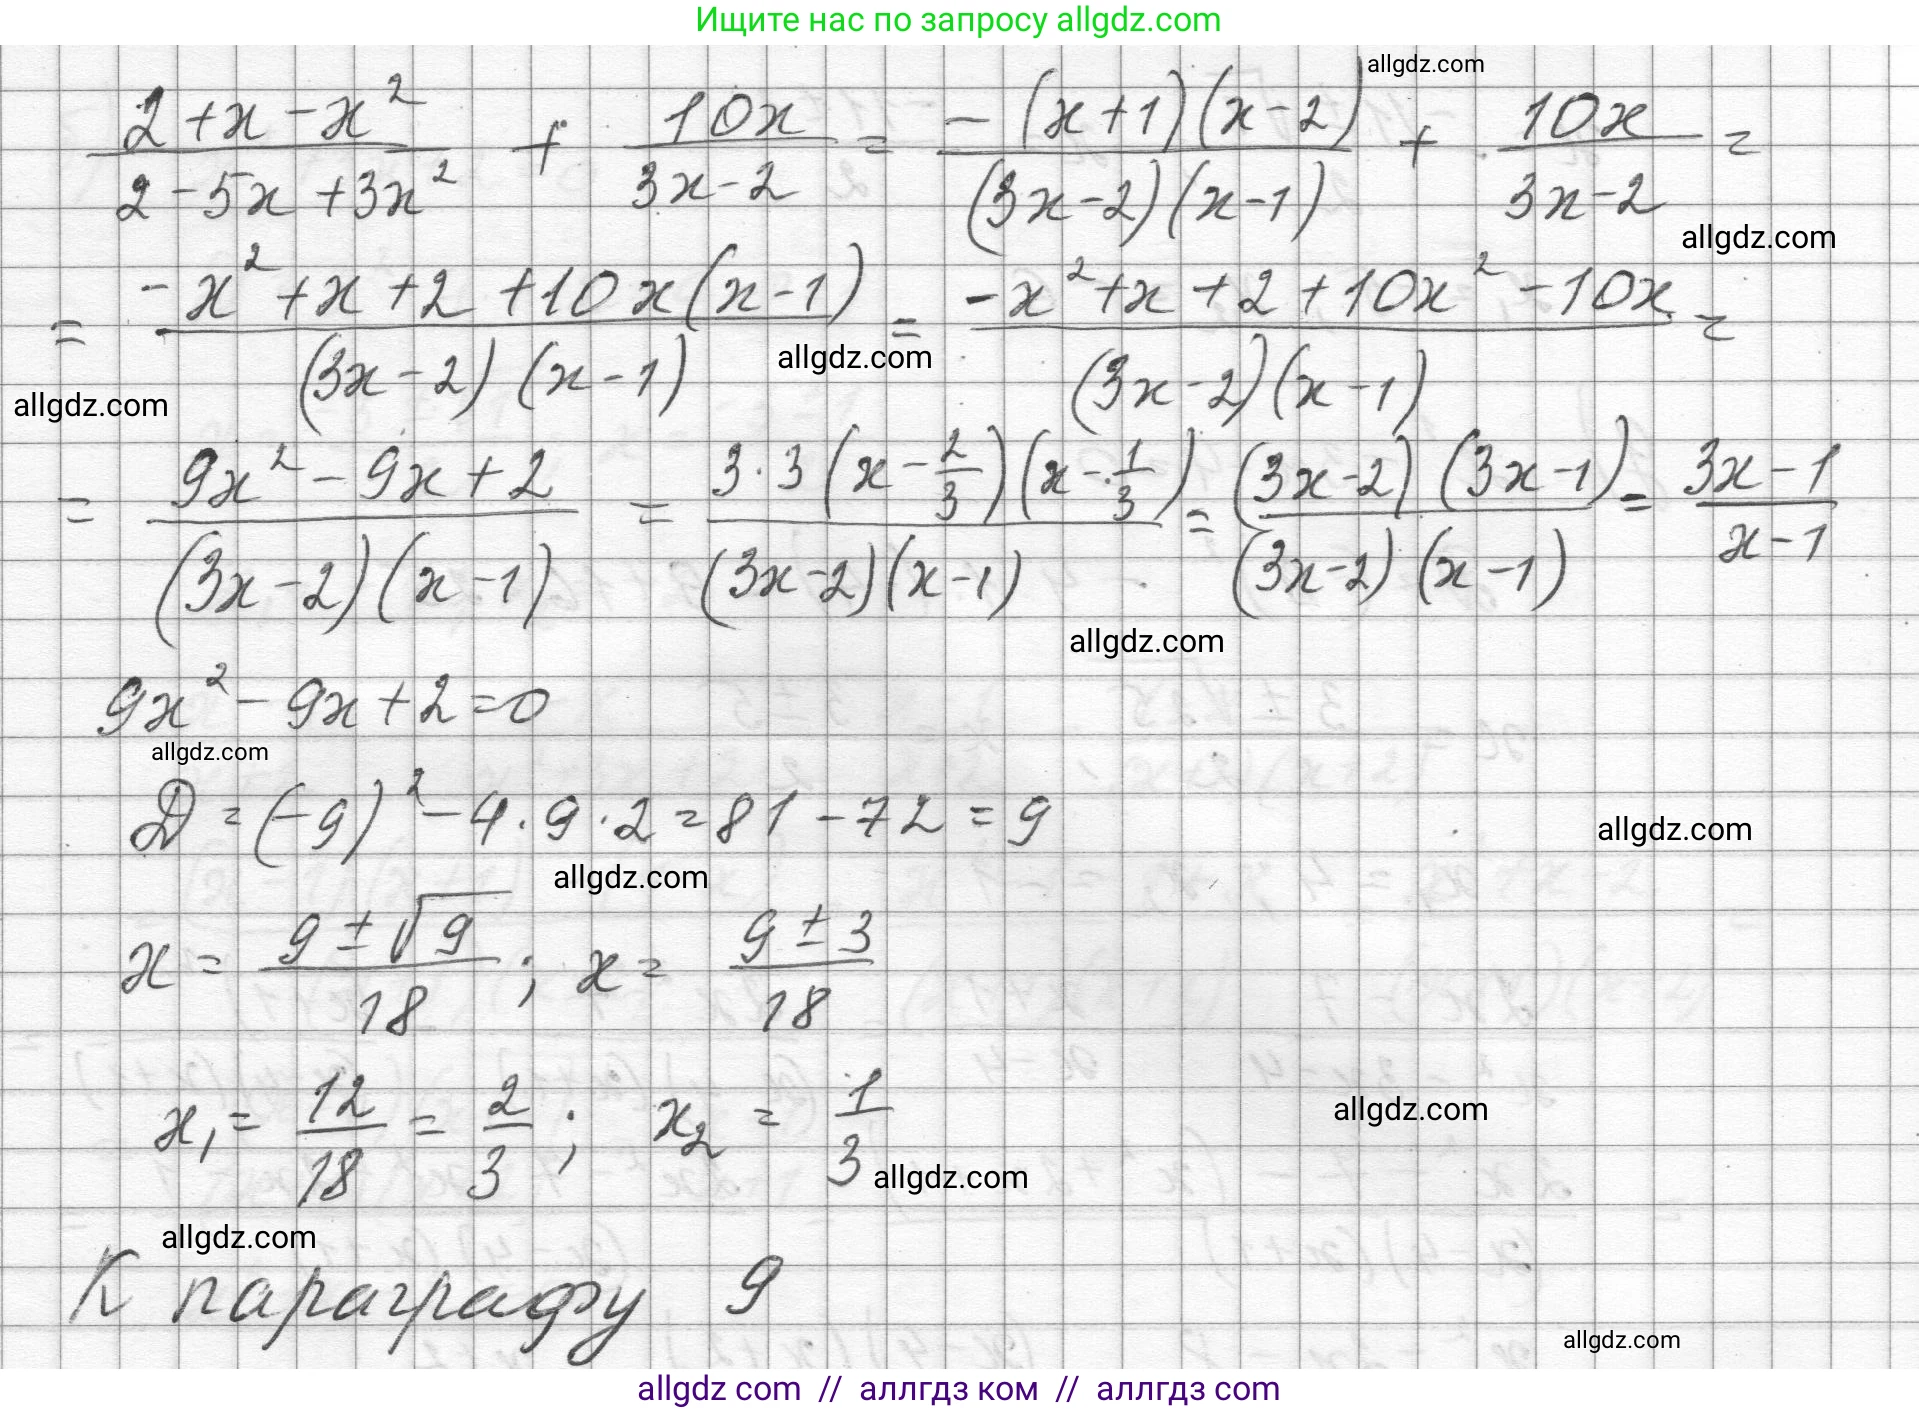 Ищите нас по запросу allgdz.com
allgdz.com
(2+x-x²)/(2-5x+3x²) + 10x/(3x-2) = -(x+1)(x-2)/((3x-2)(x-1)) + 10x/(3x-2) =
allgdz.com
= (-x²+x+2+10x(x-1))/((3x-2)(x-1)) = (-x²+x+2+10x²-10x)/((3x-2)(x-1)) =
allgdz.com
allgdz.com
= (9x²-9x+2)/((3x-2)(x-1)) = 3·3(x-2/3)(x-1/3)/((3x-2)(x-1)) = (3x-2)(3x-1)/((3x-2)(x-1)) = (3x-1)/(x-1)
allgdz.com
9x²-9x+2=0
allgdz.com
D=(-9)²-4·9·2=81-72=9
allgdz.com
allgdz.com
x = (9±√9)/18; x = (9±3)/18
x₁ = 12/18 = 2/3; x₂ = 1/3
allgdz.com
allgdz.com
allgdz.com
К параграфу 9
allgdz.com
allgdz com // аллгдз ком // аллгдз com